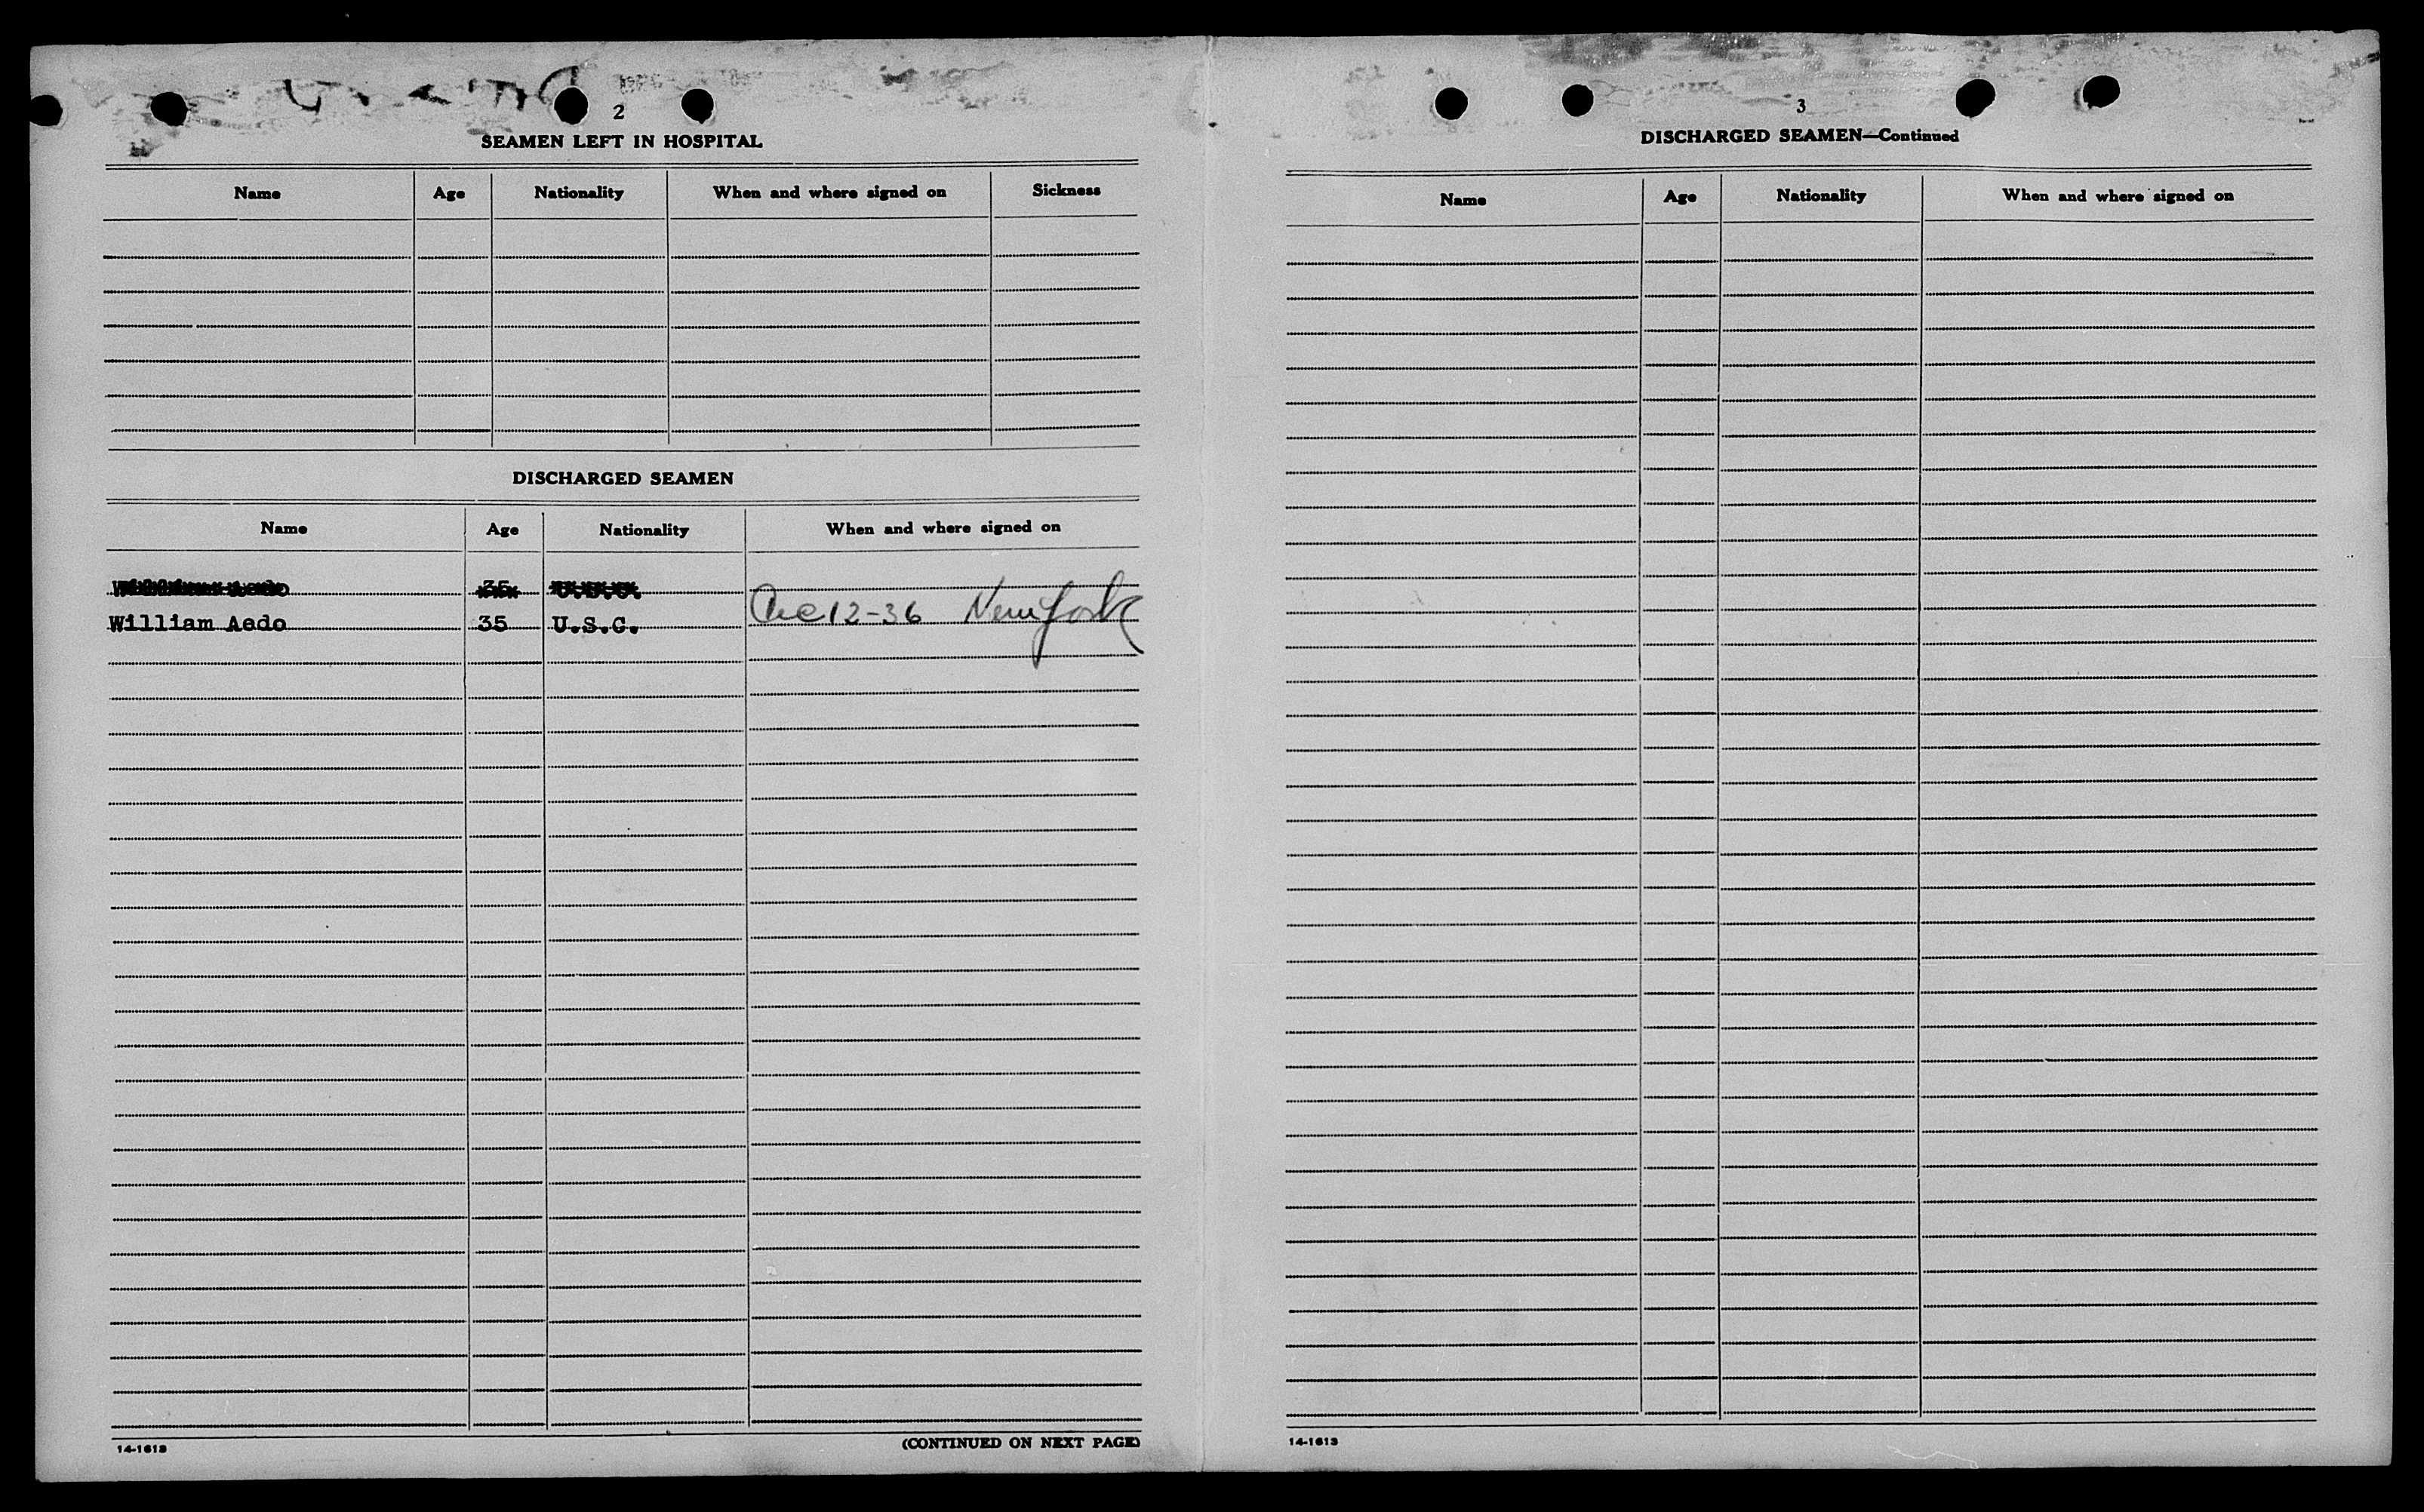 2
SEAMEN LEFT IN HOSPITAL
Name Age Nationality When and where signed on Sickness
DISCHARGED SEAMEN
Name Age Nationality When and where signed on
William Aedo 35 U.S.C.
William Aedo 35 U.S.C. Dec 12-36 New York
14-1613 (CONTINUED ON NEXT PAGE)
3
DISCHARGED SEAMEN—Continued
Name Age Nationality When and where signed on
14-1613